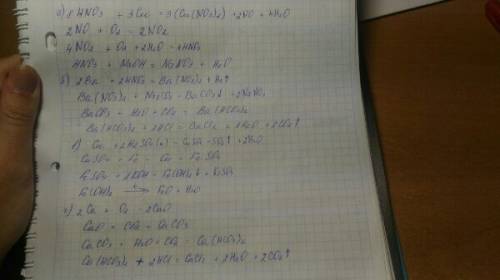 а) 8HNO3 + 3Cu = 3Cu(NO3)2 + 2NO + 4H2O
2NO + O2 = 2NO2
4NO2 + O2 + 2H2O = 4HNO3
HNO3 + NaOH = NaNO3 + H2O
Ba(NO3)2 + Na2CO3 = BaCO3↓ + 2NaNO3
BaCO3 + H2O + CO2 = Ba(HCO3)2
Ba(HCO3)2 + 2HCl = BaCl2 + 2H2O + 2CO2↑
в) Cu + 2H2SO4(к) = CuSO4 + SO2↑ + 2H2O
CuSO4 + Fe = Cu + FeSO4
Fe(OH)2 FeO + H2O
г) 2Ca + O2 = 2CaO
CaO + CO2 = CaCO3
CaCO3 + H2O + CO2 = Ca(HCO3)2
Ca(HCO3)2 + 2HCl = CaCl2 + 2H2O + 2CO2↑